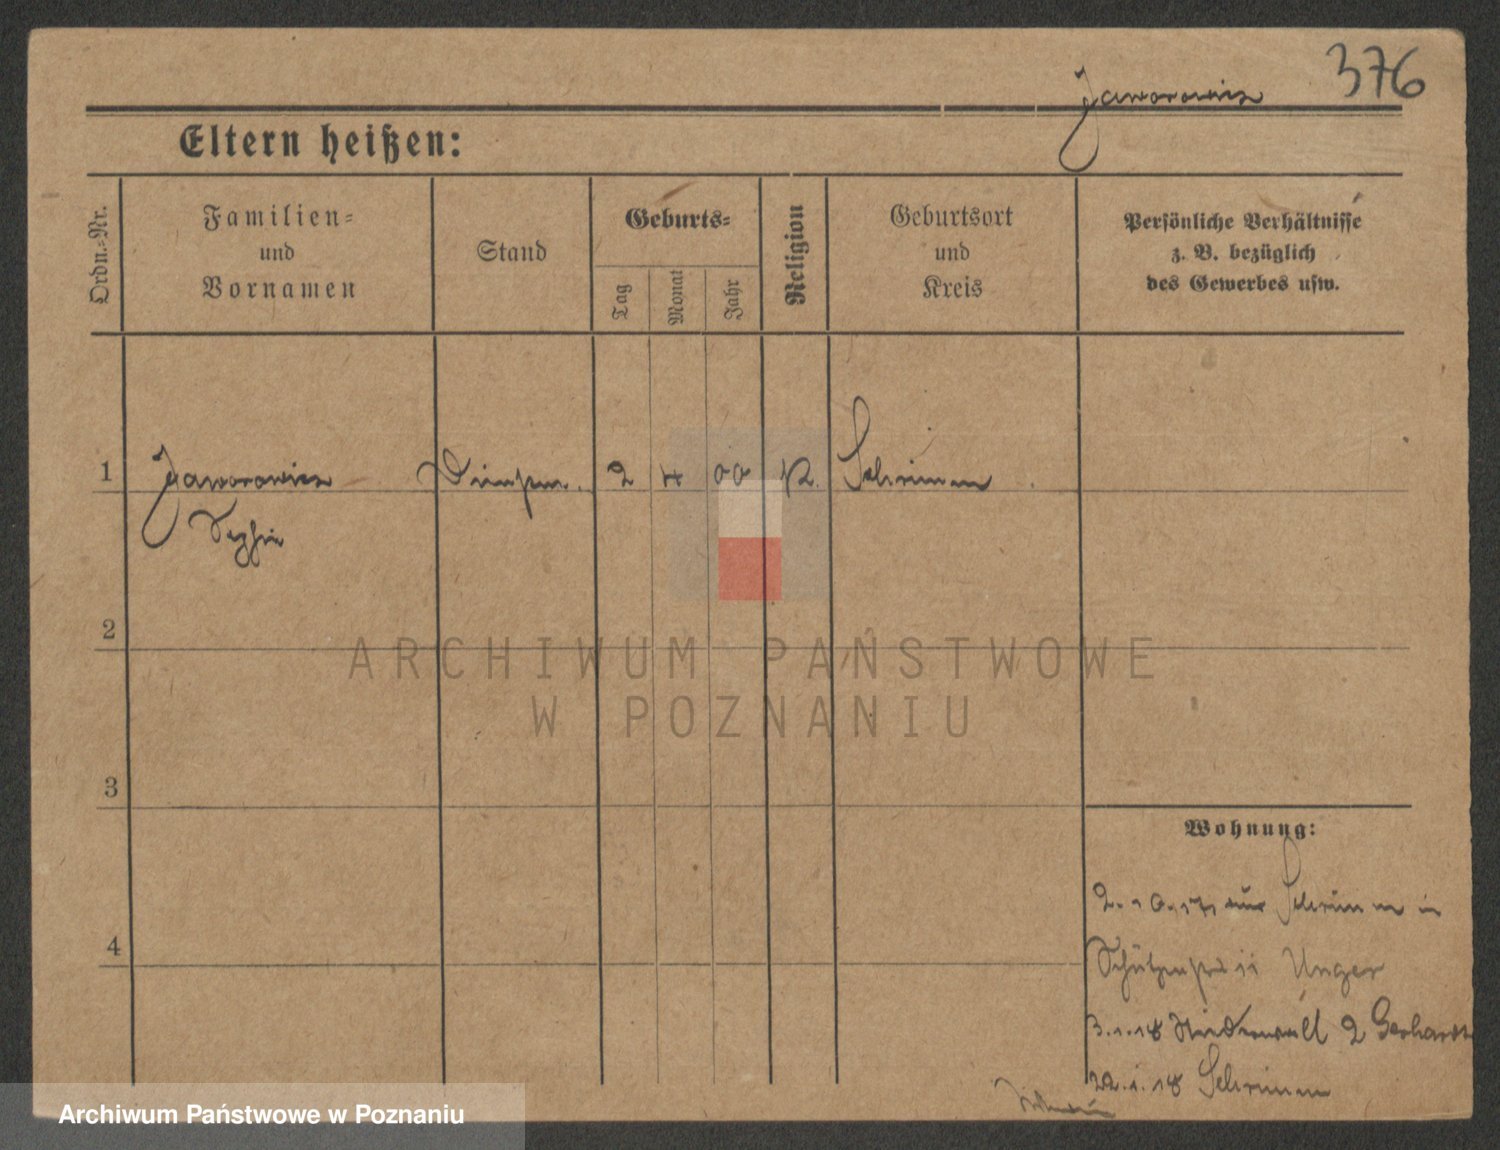 376
Jaworowicz
Eltern heißen:
Ordn.-Nr.
Familien-
und
Vornamen
Stand
Geburts-
Tag
Monat
Jahr
Religion
Geburtsort
und
Kreis
Persönliche Verhältnisse
z. B. bezüglich
des Gewerbes usw.
1 Jaworowicz 2 4 00 K. Schrimm
Sophie
2
3
4
ARCHIWUM PAŃSTWOWE
W POZNANIU
Wohnung:
2.10.17 aus Schrimm in
11 Unger
3.1.18 Niederwall 2 Gerhardt
22.1.18 Schrimm
Archiwum Państwowe w Poznaniu